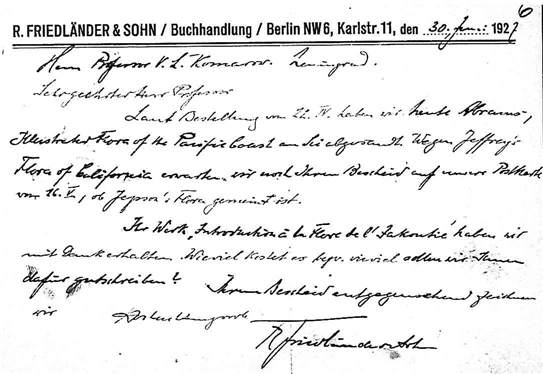 6
R. FRIEDLÄNDER & SOHN / Buchhandlung / Berlin NW6, Karlstr. 11, den 30. Juni 1927
Herrn Professor V. L. Komarow. Leningrad.
Sehrgeehrter Herr Professor
Laut Bestellung vom 22. IV. haben wir heute Abrams,
Illustrated Flora of the Pacific Coast an Sie abgesandt. Wegen Jeffrey's
Flora of California erwarten wir noch Ihren Bescheid auf unsere Postkarte
vom 16. V., ob Jepson's Flora gemeint ist.
Ihr Werk „Introduction à la Flore de l'Iakoutie" haben wir
mit Dank erhalten. Wieviel kostet es bezw. wieviel sollen wir Ihnen
dafür gutschreiben?
Ihrem Bescheid entgegensehend zeichnen
wir
R Friedländer & Sohn